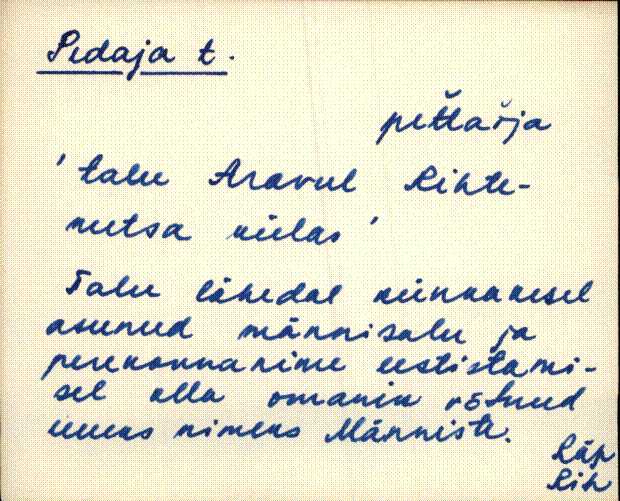 Pedaja t.
pettäi̬ja
'talu Aravul Rihte-
metsa külas'
Talu lähedal künkakesel
asunud männisalu ja
perekonnanime eestistami-
sel olla omanik võtnud
uueks nimeks Männiste.
Räp
Rih